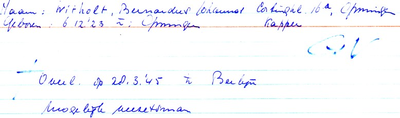 Naam: Witholt, Bernardus Johannes Costingel. 16a, Groningen
Geboren: 6.12.'23 te: Groningen kapper
Overl. op 28.3.'45 te Berlijn
Mogelijk verzetsman